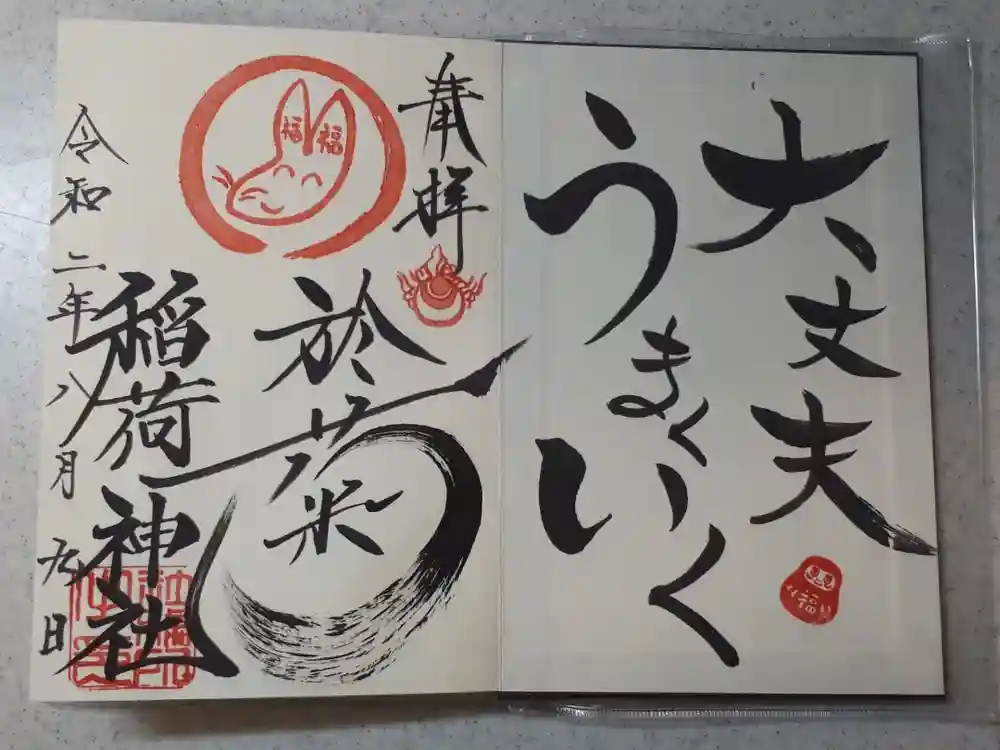 大丈夫
うまくいく
福
奉拝
福 福
於菊
稲荷神社
令和二年八月九日